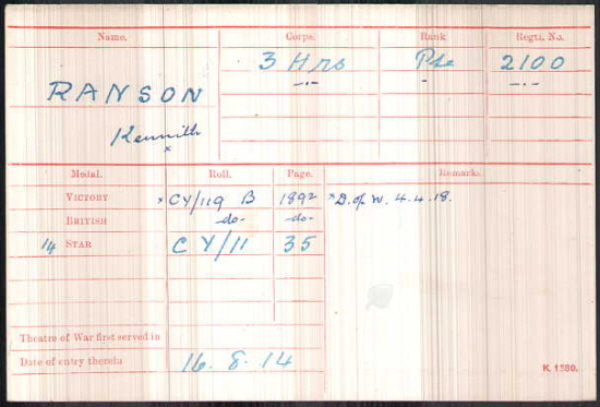 Name. Corps. Rank Regtl. No.
RANSON 3 Hrs Pte 2100
Kennith -.- - -.-
x
Medal. Roll. Page. Remarks.
VICTORY x CY/119 B 1892 x D. of W. 4.4.18.
BRITISH -do- -do-
14 STAR CY/11 35
Theatre of War first served in
Date of entry therein 16. 8. 14
K. 1380.